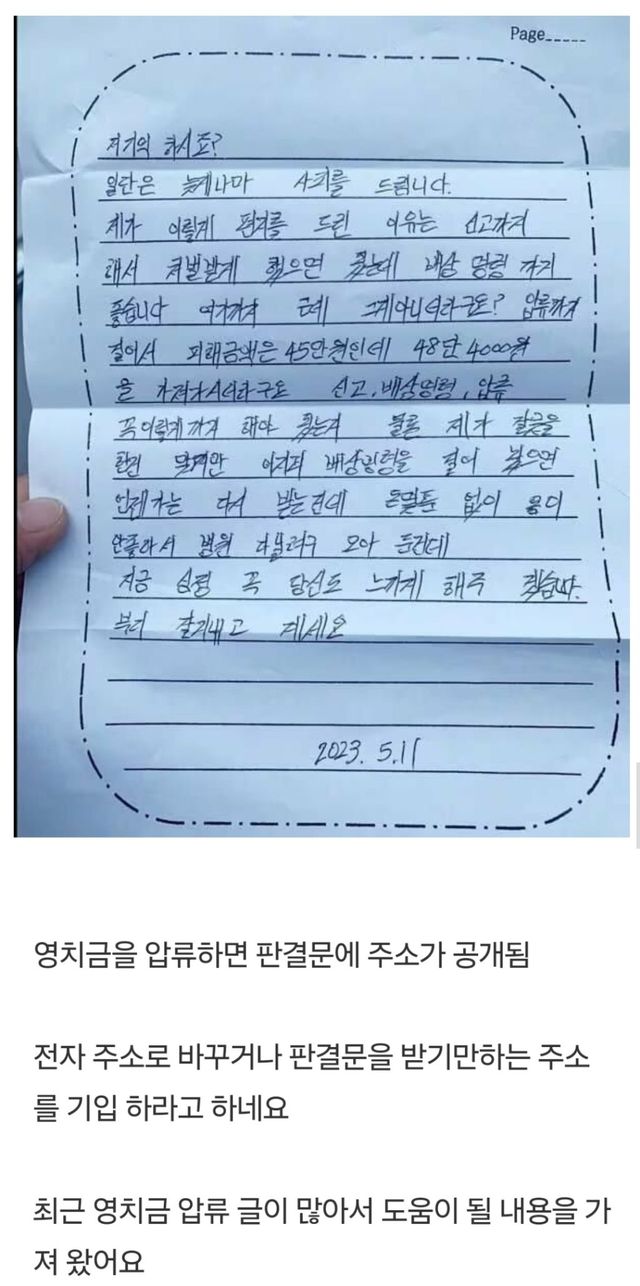 Page_____
저기억 하시죠?
일단은 늦게나마 사죄를 드립니다.
제가 이렇게 편지를 드린 이유는 신고까지
해서 처벌받게 했으면 됐는데 배상 명령 까지
좋습니다 여기까지 근데 그게아니더라구요? 압류까지
걸어서 피해금액은 45만원인데 48만 4000원
을 가져가시더라구요 신고, 배상명령, 압류
꼭이렇게 까지 해야 했는지 물론 제가 잘못을
한건 맞지만 어차피 배상명령을 걸어 놨으면
언젠가는 다 받는건데 몸이
안좋아서 병원 다닐려구 모아 둔건데
지금 심정 꼭 당신도 느끼게 해주 겠습니다.
부디 잘지내고 계세요
2023. 5.11
영치금을 압류하면 판결문에 주소가 공개됨
전자 주소로 바꾸거나 판결문을 받기만하는 주소
를 기입 하라고 하네요
최근 영치금 압류 글이 많아서 도움이 될 내용을 가
져 왔어요